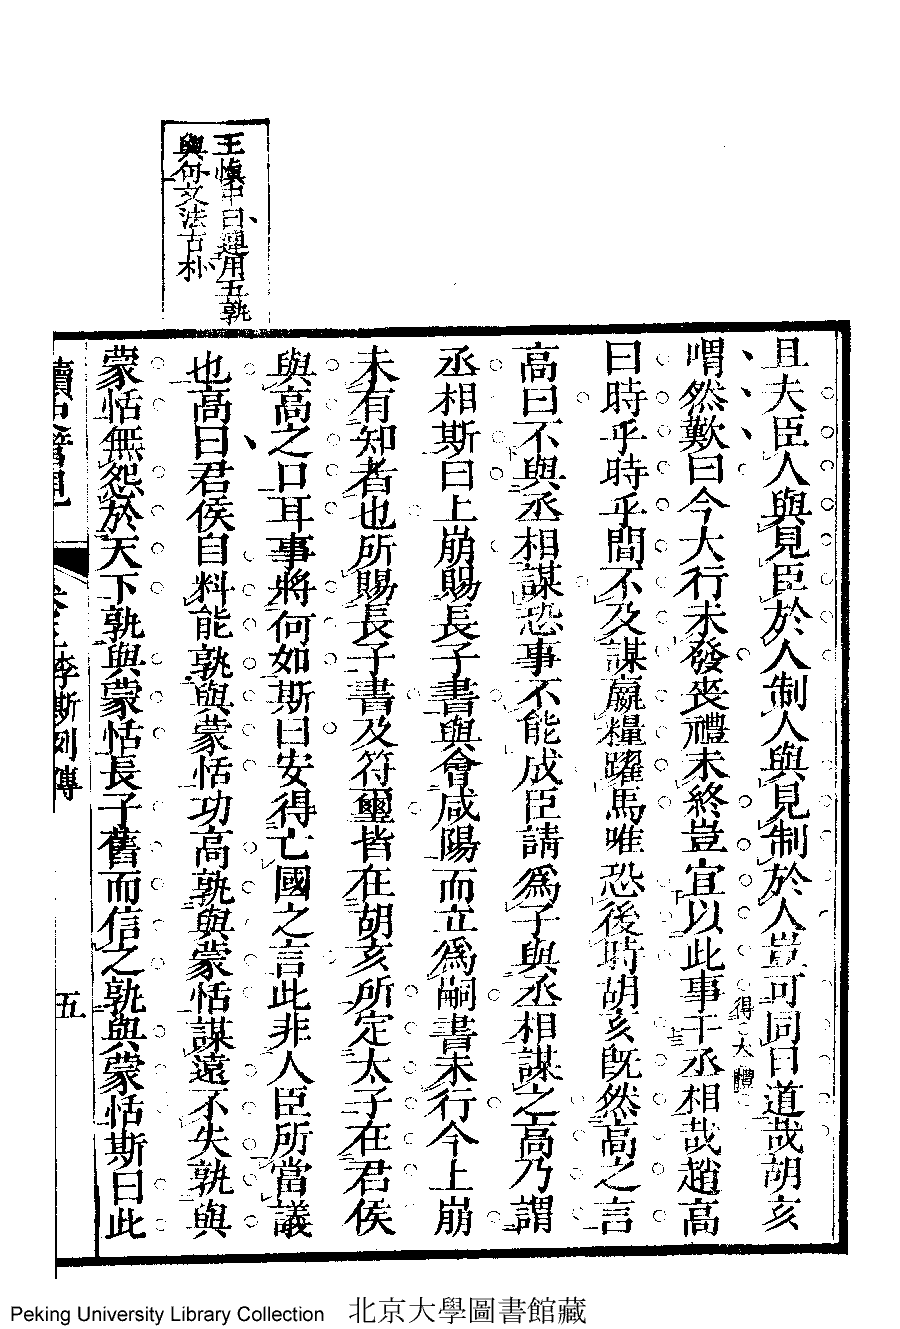 王懷中曰運用五孰
與句文法古朴
且夫臣人與見臣於人制人與見制於人豈可同日道哉胡亥
喟然歎曰今大行未發喪禮未終豈宜以此事干丞相哉趙高
得大體
曰時乎時乎間不及謀贏糧躍馬唯恐後時胡亥旣然高之言
高曰不與丞相謀恐事不能成臣請爲子與丞相謀之高乃謂
丞相斯曰上崩賜長子書與會咸陽而立爲嗣書未行今上崩
未有知者也所賜長子書及符璽皆在胡亥所定太子在君侯
與高之口耳事將何如斯曰安得亡國之言此非人臣所當議
也高曰君侯自料能孰與蒙恬功高孰與蒙恬謀遠不失孰與
蒙恬無怨於天下孰與蒙恬長子舊而信之孰與蒙恬斯曰此
讀史管見
李斯列傳
五
Peking University Library Collection 北京大學圖書館藏